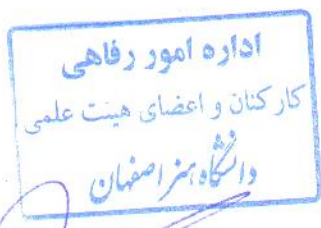 اداره امور رفاهی
کارکنان و اعضای هیئت علمی
دانشگاه هنر اصفهان